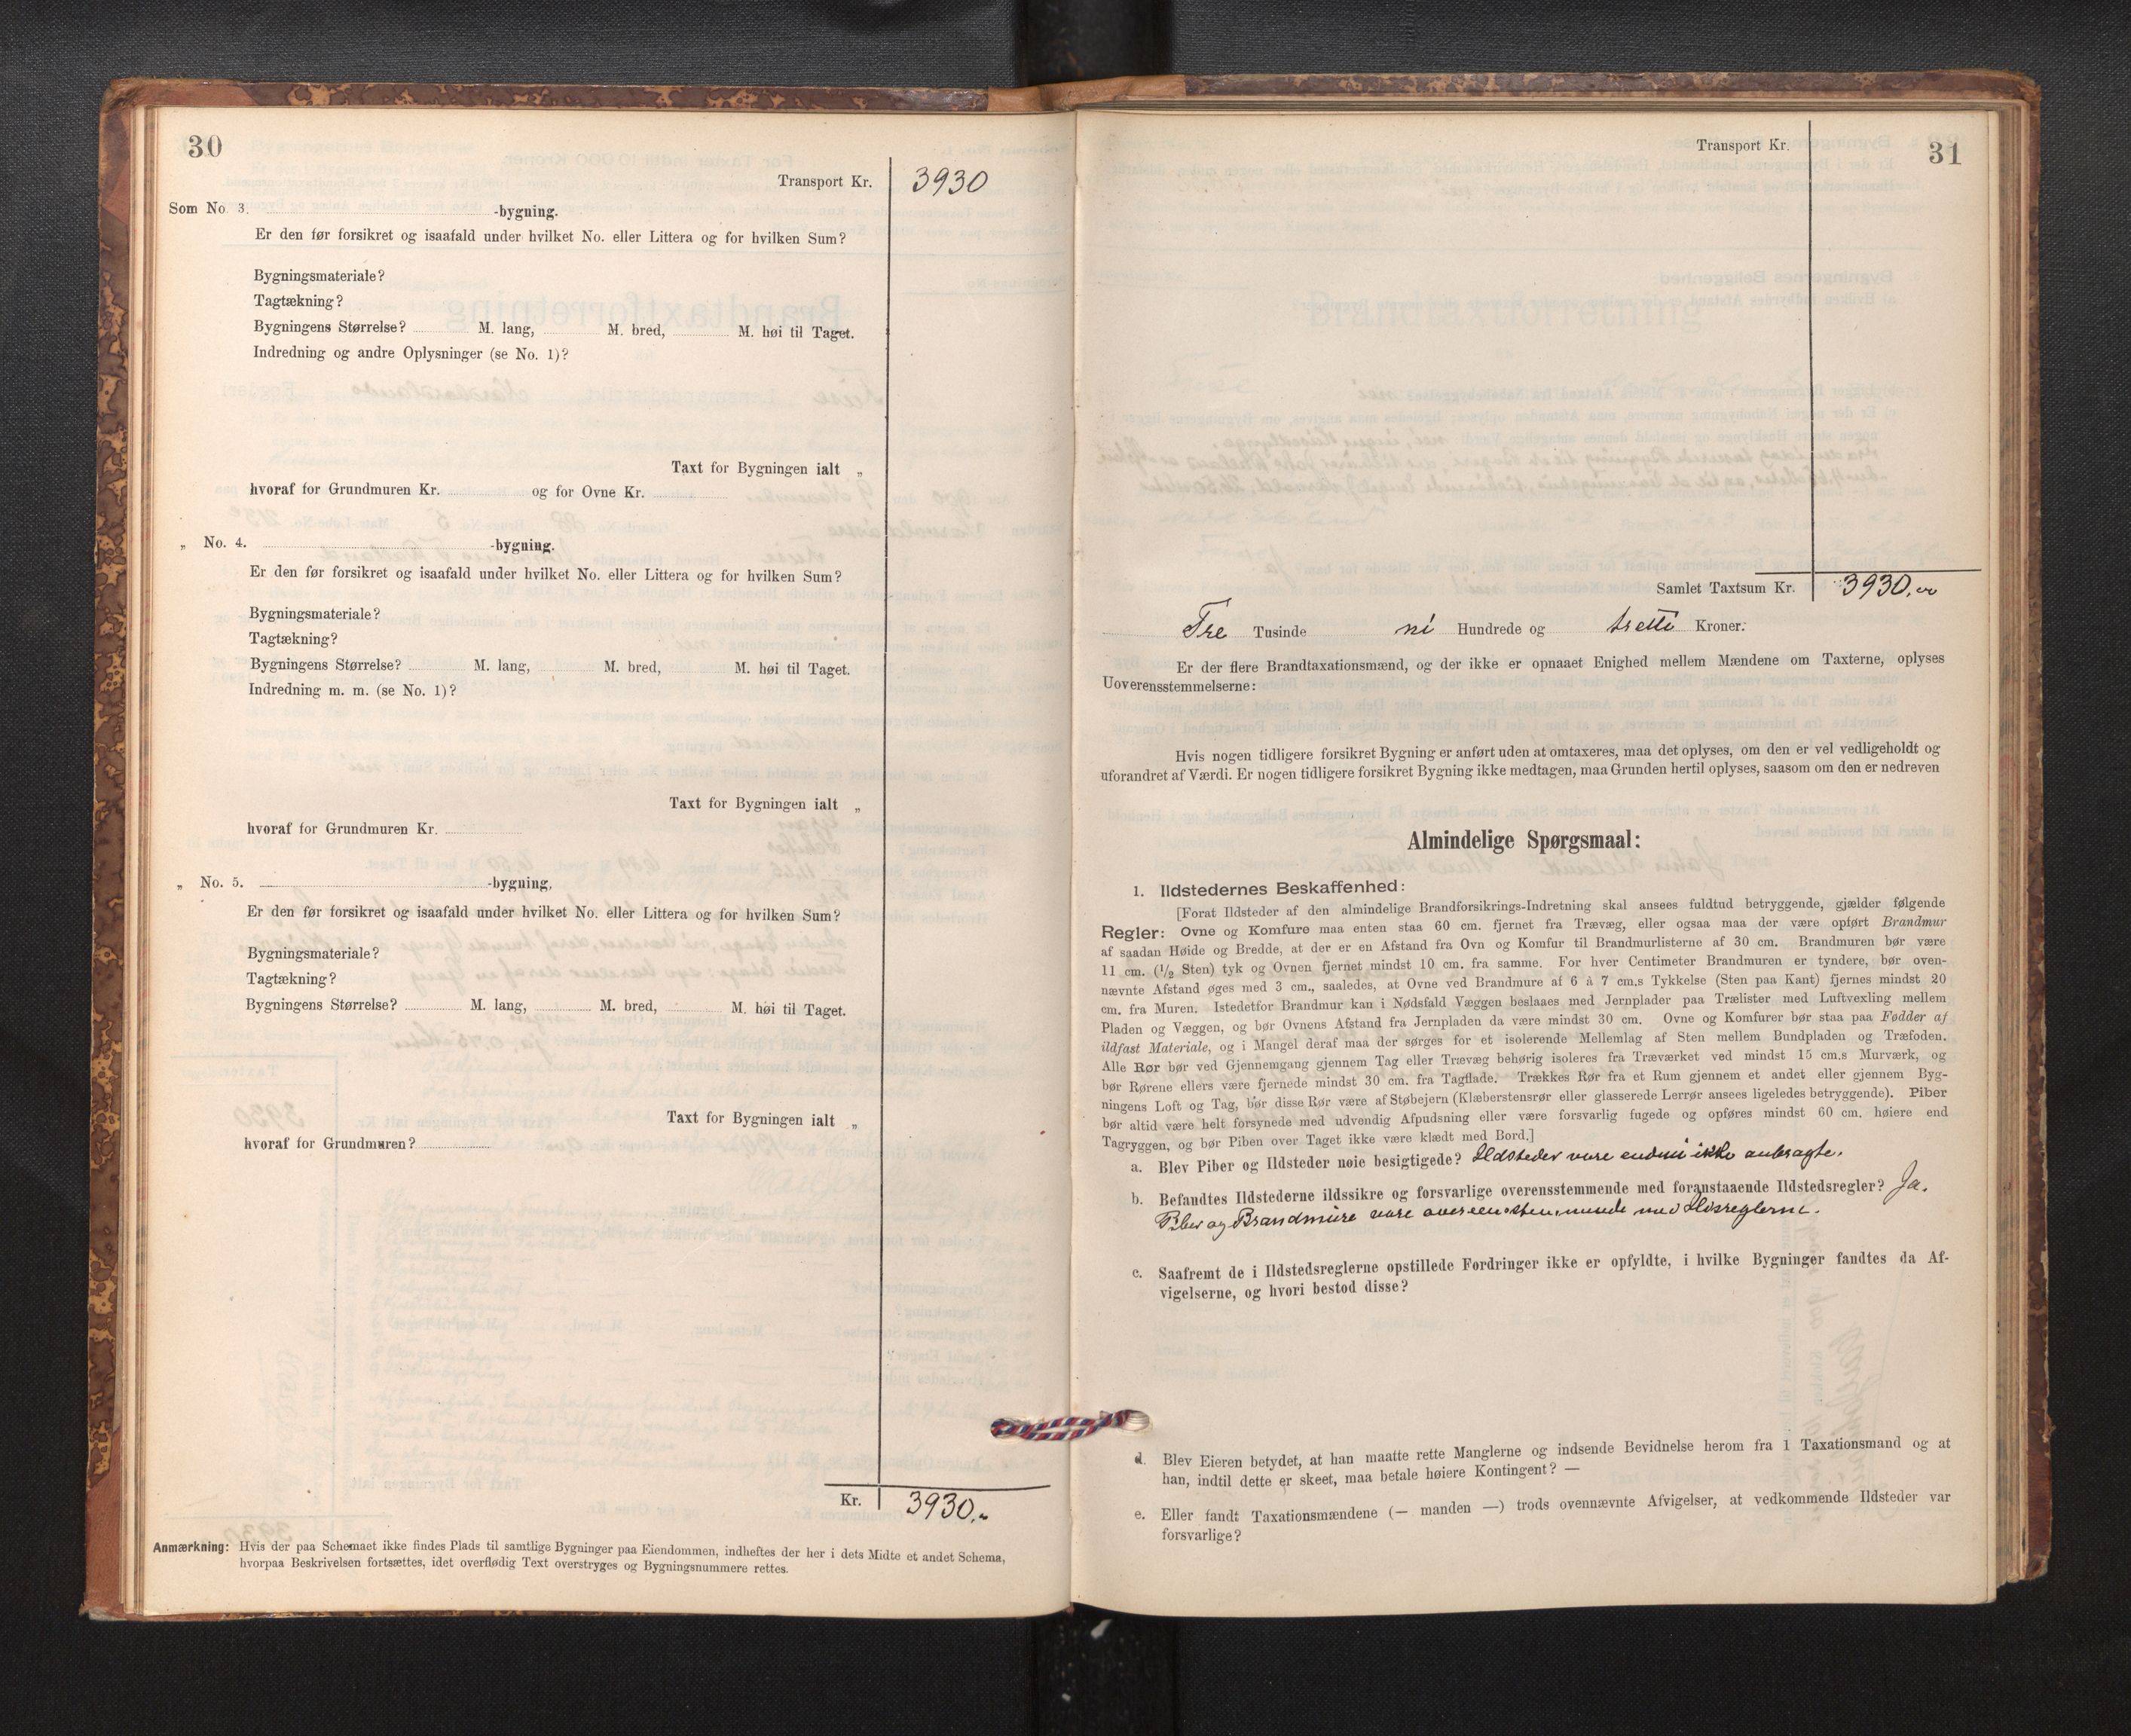 30
Transport Kr. 3930
Som No. 3. -bygning.
Er den før forsikret og isaafald under hvilket No. eller Littera og for hvilken Sum?
Bygningsmateriale?
Tagtækning?
Bygningens Størrelse? M. lang, M. bred, M. høi til Taget.
Indredning og andre Oplysninger (se No. 1)?
Taxt for Bygningen ialt „
hvoraf for Grundmuren Kr. og for Ovne Kr.
„ No. 4. -bygning.
Er den før forsikret og isaafald under hvilket No. eller Littera og for hvilken Sum?
Bygningsmateriale?
Tagtækning?
Bygningens Størrelse? M. lang, M. bred, M. høi til Taget.
Indredning m. m. (se No. 1)?
Taxt for Bygningen ialt „
hvoraf for Grundmuren Kr.
„ No. 5. -bygning.
Er den før forsikret og isaafald under hvilket No. eller Littera og for hvilken Sum?
Bygningsmateriale?
Tagtækning?
Bygningens Størrelse? M. lang, M. bred, M. høi til Taget.
Taxt for Bygningen ialt „
hvoraf for Grundmuren?
Kr. 3930.-
Anmærkning: Hvis der paa Schemaet ikke findes Plads til samtlige Bygninger paa Eiendommen, indheftes der her i dets Midte et andet Schema,
hvorpaa Beskrivelsen fortsættes, idet overflødig Text overstryges og Bygningsnummere rettes.
Transport Kr.
31
Samlet Taxtsum Kr. 3930.
Tre Tusinde ni Hundrede og tretti Kroner.
Er der flere Brandtaxationsmænd, og der ikke er opnaaet Enighed mellem Mændene om Taxterne, oplyses
Uoverensstemmelserne:
Hvis nogen tidligere forsikret Bygning er anført uden at omtaxeres, maa det oplyses, om den er vel vedligeholdt og
uforandret af Værdi. Er nogen tidligere forsikret Bygning ikke medtagen, maa Grunden hertil oplyses, saasom om den er nedreven
Almindelige Spørgsmaal:
1. Ildstedernes Beskaffenhed:
[Forat Ildsteder af den almindelige Brandforsikrings-Indretning skal ansees fuldtud betryggende, gjælder følgende
Regler: Ovne og Komfure maa enten staa 60 cm. fjernet fra Trævæg, eller ogsaa maa der være opført Brandmur
af saadan Høide og Bredde, at der er en Afstand fra Ovn og Komfur til Brandmurlisterne af 30 cm. Brandmuren bør være
11 cm. (1/2 Sten) tyk og Ovnen fjernet mindst 10 cm. fra samme. For hver Centimeter Brandmuren er tyndere, bør oven-
nævnte Afstand øges med 3 cm., saaledes, at Ovne ved Brandmure af 6 à 7 cm.s Tykkelse (Sten paa Kant) fjernes mindst 20
cm. fra Muren. Istedetfor Brandmur kan i Nødsfald Væggen beslaaes med Jernplader paa Trælister med Luftvexling mellem
Pladen og Væggen, og bør Ovnens Afstand fra Jernpladen da være mindst 30 cm. Ovne og Komfurer bør staa paa Fødder af
ildfast Materiale, og i Mangel deraf maa der sørges for et isolerende Mellemlag af Sten mellem Bundpladen og Træfoden.
Alle Rør bør ved Gjennemgang gjennem Tag eller Trævæg behørig isoleres fra Træværket ved mindst 15 cm.s Murværk, og
bør Rørene ellers være fjernede mindst 30 cm. fra Tagflade. Trækkes Rør fra et Rum gjennem et andet eller gjennem Byg-
ningens Loft og Tag, bør disse Rør være af Støbejern (Klæberstensrør eller glasserede Lerrør ansees ligeledes betryggende). Piber
bør altid være helt forsynede med udvendig Afpudsning eller være forsvarlig fugede og opføres mindst 60 cm. høiere end
Tagryggen, og bør Piben over Taget ikke være klædt med Bord.]
a. Blev Piber og Ildsteder nøie besigtigede? Ildsteder vare endnu ikke anbragte.
b. Befandtes Ildstederne ildssikre og forsvarlige overensstemmende med foranstaaende Ildstedsregler? Ja.
Piber og Brandmure vare overensstemmende med
c. Saafremt de i Ildstedsreglerne opstillede Fordringer ikke er opfyldte, i hvilke Bygninger fandtes da Af-
vigelserne, og hvori bestod disse?
d. Blev Eieren betydet, at han maatte rette Manglerne og indsende Bevidnelse herom fra 1 Taxationsmand og at
han, indtil dette er skeet, maa betale høiere Kontingent? —
e. Eller fandt Taxationsmændene (— manden —) trods ovennævnte Afvigelser, at vedkommende Ildsteder var
forsvarlige?